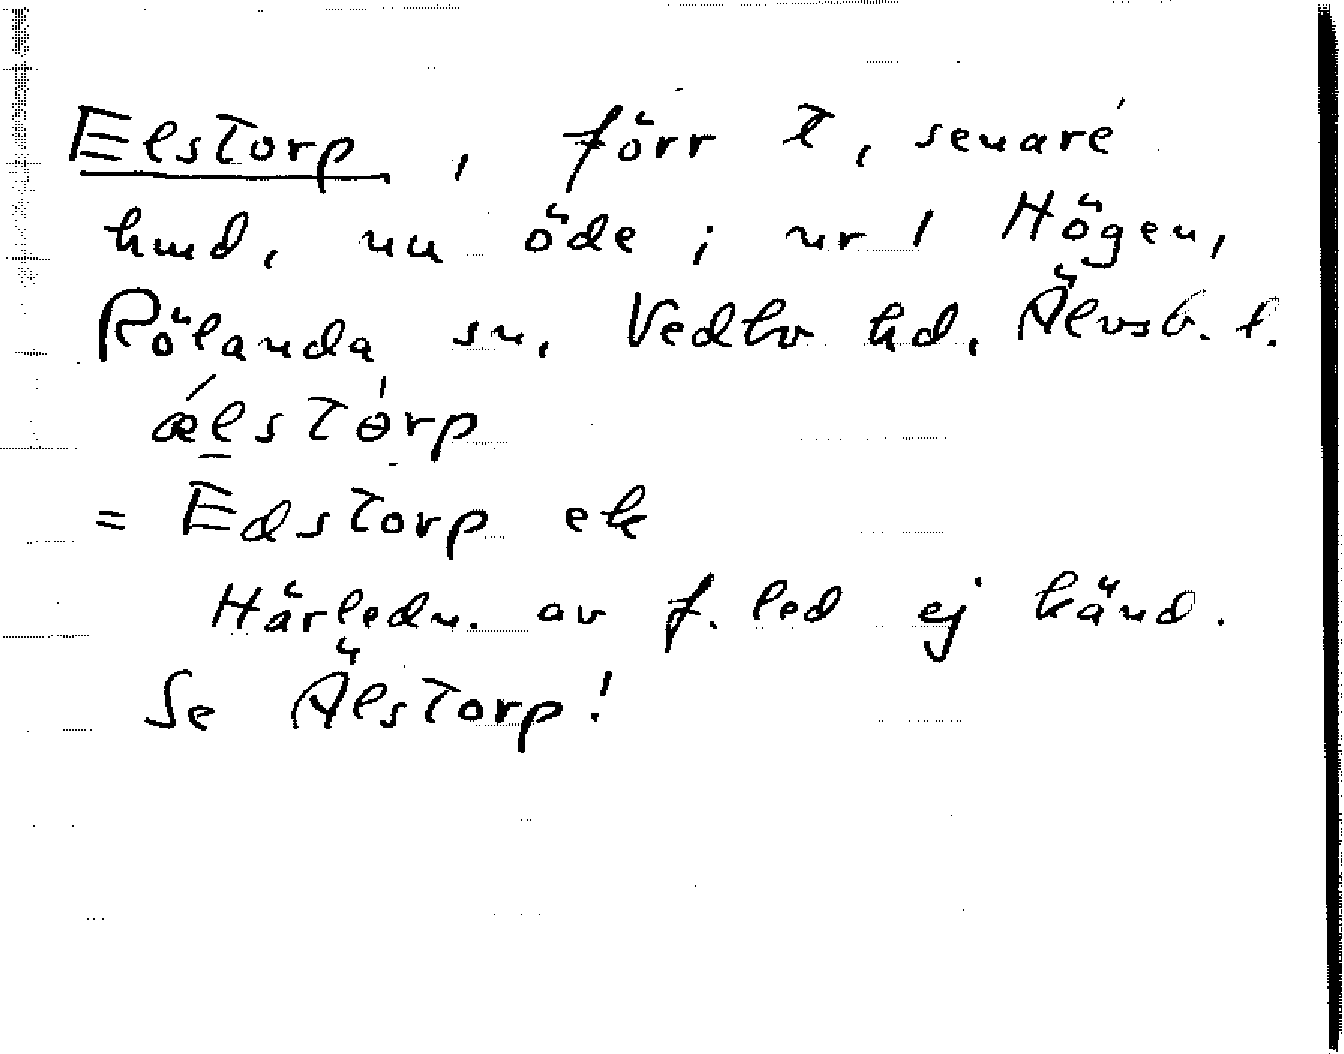 Elstorp, förr t, senare
hmd, nu öde i nr 1 Högen,
Rölanda sn, Vedbo hd, Älvsb. l.
ǽlstòrp
= Edstorp ek
Härledn. av f. led ej känd.
Se Älstorp!